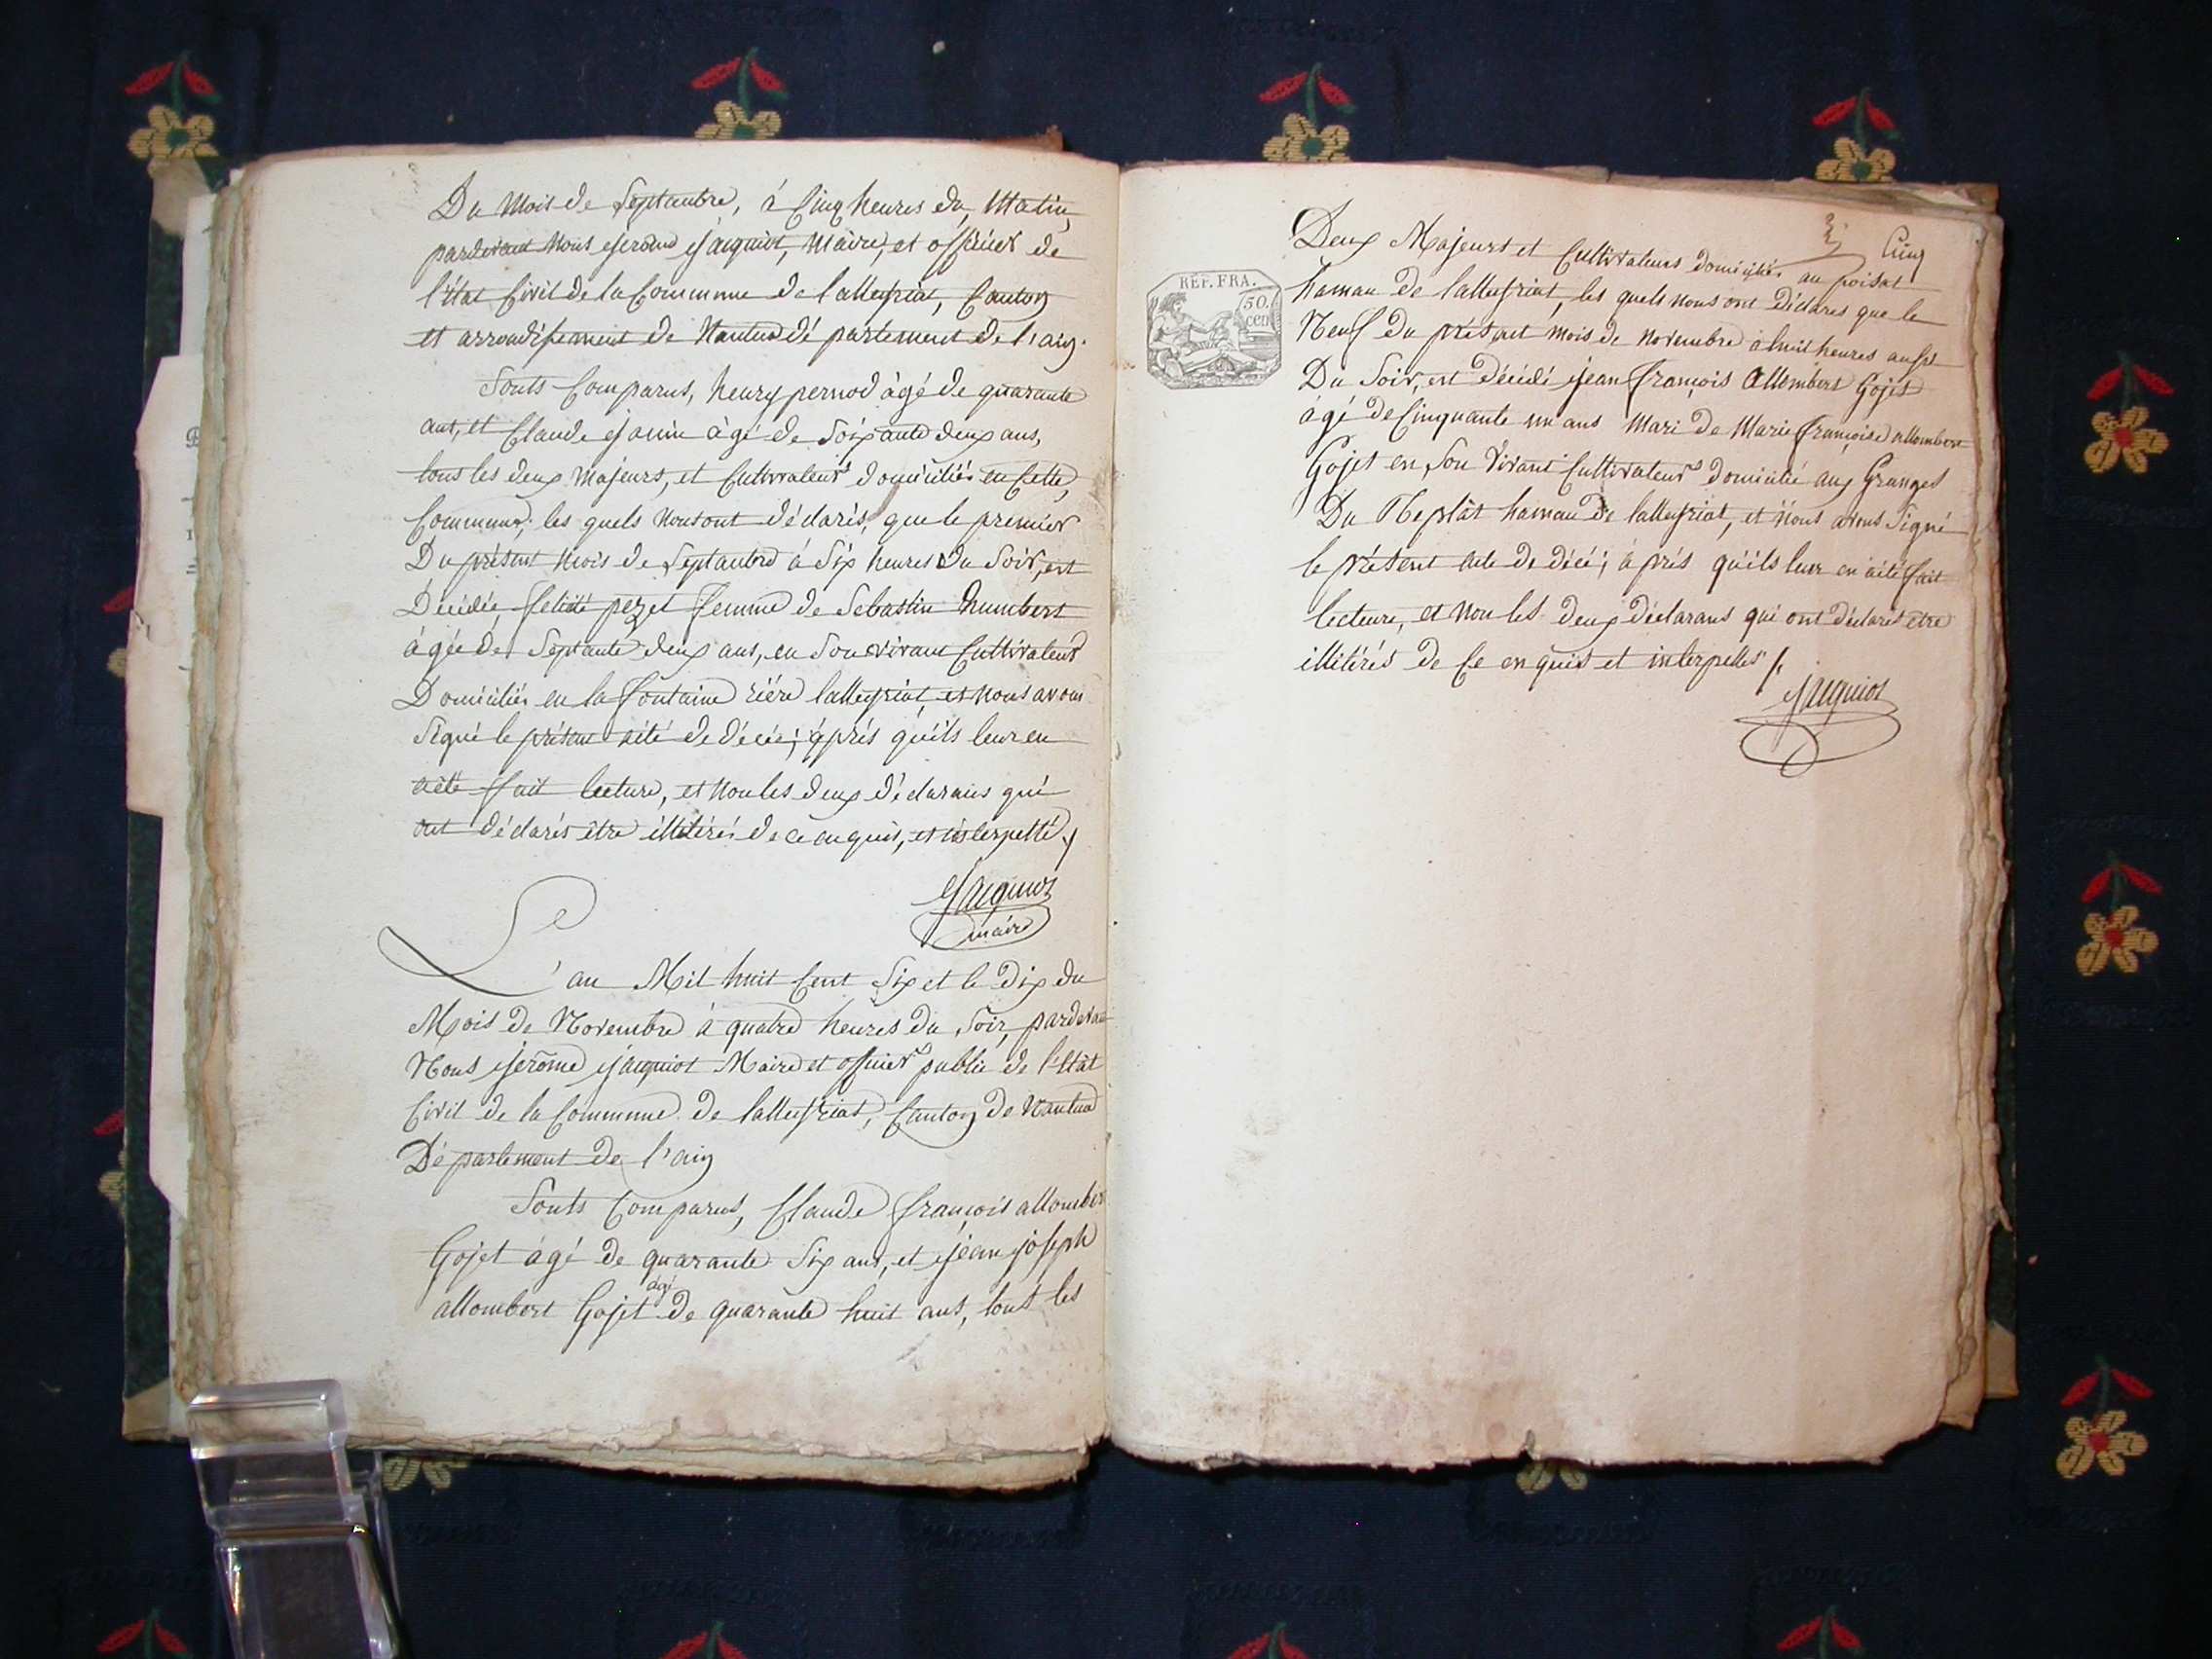 Du Mois de Septambre, à Cinq heures du Matin,
pardevant Nous jerome jacquiot, Maire, et officier de
l'état Civil de la Commune de lalleyriat, Canton
et arrondissement de Nantua département de l'ain.
Sonts Comparus, henry pernod àgé de quarante
ans, et Claude janin àgé de Soixante deux ans,
tous les deux Majeurs, et Cultivateurs domiciliés en Cette
Commune; les quels Nous ont déclarés, que le premier
Du présent Mois de Septambre à Six heures du Soir, est
Décédée, felicité pezet femme de Sebastin humbert
àgée de Septante deux ans, en Son vivant Cultivateur
Domiciliée en la fontaine rière lalleyriat, et Nous avons
Signé le présent acte de décée; après qu'ils leur en
aété fait lecture, et Non les deux déclarans qui
ont déclarés être illitérés de ce enquis, et interpellé.
Jacquiot
maire
L'an Mil huit Cent Six et le Dix du
Mois de Novembre à quatre heures du Soir, pardevant
Nous jerôme jacquiot Maire et officier public de l'état
Civil de la Commune de lalleyriat, Canton de Nantua
Département de l'ain
Sonts Comparus, Claude françois allombert
Gojet àgé de quarante Six ans, et jean joseph
allombert Gojet àgé de quarante huit ans, tout les
Cinq
RÉP. FRA.
50.
cen
Deux Majeurs et Cultivateurs domiciliés au poisat
hamau de lalleyriat, les quels nous ont Déclarés que le
Neuf du présent mois de novembre à huit heures aussi
Du Soir, est Décédé jean françois Allombert Gojet
àgé de Cinquante un ans Mari de Marie françoise allombert
Gojet en Son Vivant Cultivateur domicilié aux Granges
Du Replât hamau de lalleyriat, et Nous avons Signé
le présent acte de décé; àprés qu'ils leur en aété fait
lecture, et Non les deux déclarans qui ont déclarés etre
illitérés de Ce enquis et interpellés /.
Jacquiot